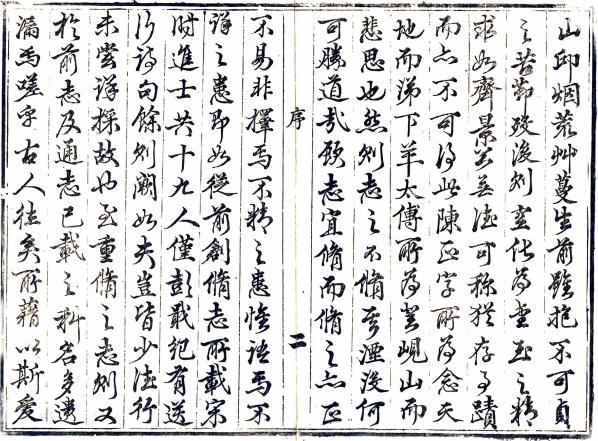 山邱烟荒艸蔓生前雖抱不可貞
之苦節歿後則空化為之精
求如齊景無德可稱猶存事蹟
而亦不可得此陳正字所為念天
地而涕下羊太傅所為登峴山而
悲思也然則志之不脩其湮沒何
可勝道哉顧志宜脩而脩之亦正
序
二
不易非擇焉不精之患惟語焉不
詳之患即如從前創脩志所載宋
時進士共十九人僅彭戢紀有送
行詩句餘則闕如夫豈皆少德行
未嘗詳採故也至重脩之志則又
於前志及通志已載之科名多遺
漏焉嗟乎古人往矣所藉以斯愛